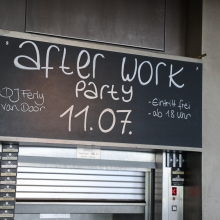 after work
party
DJ Ferly
van Door
11.07.
- Eintritt frei
- ab 18 uhr